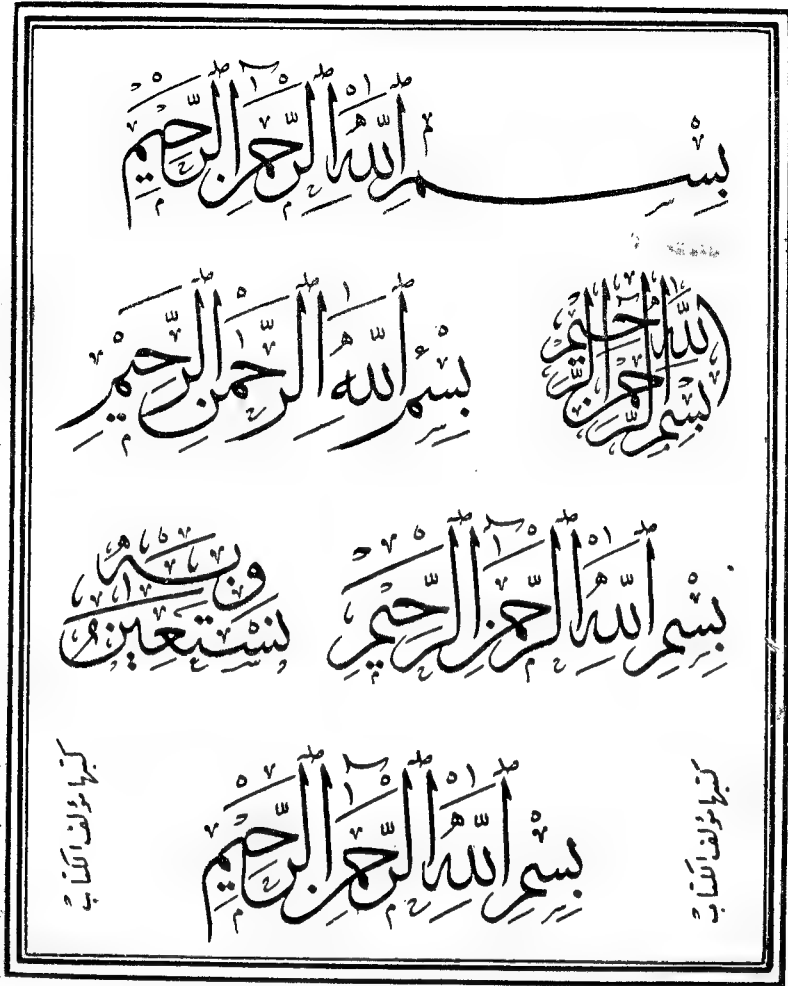 بسم الله الرحمن الرحيم
بسم الله الرحمن الرحيم
بسم الله الرحمن الرحيم
بسم الله الرحمن الرحيم
وبه نستعين
بسم الله الرحمن الرحيم
كتبها مؤلف الكتاب
كتبها مؤلف الكتاب